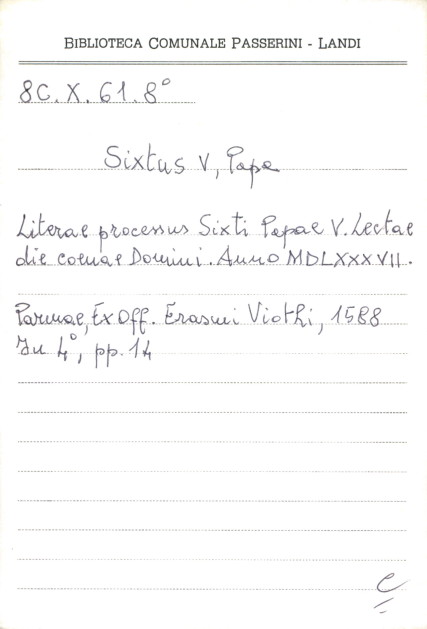 BIBLIOTECA COMUNALE PASSERINI - LANDI
8C. X. 61. 8°
Sixtus V, Papa
Literae processus Sixti Papae V. Lectae
die coenae Domini. Anno MDLXXXVII.
Parmae, Ex Off. Erasmi Viothi, 1588
In 4°, pp. 14
C